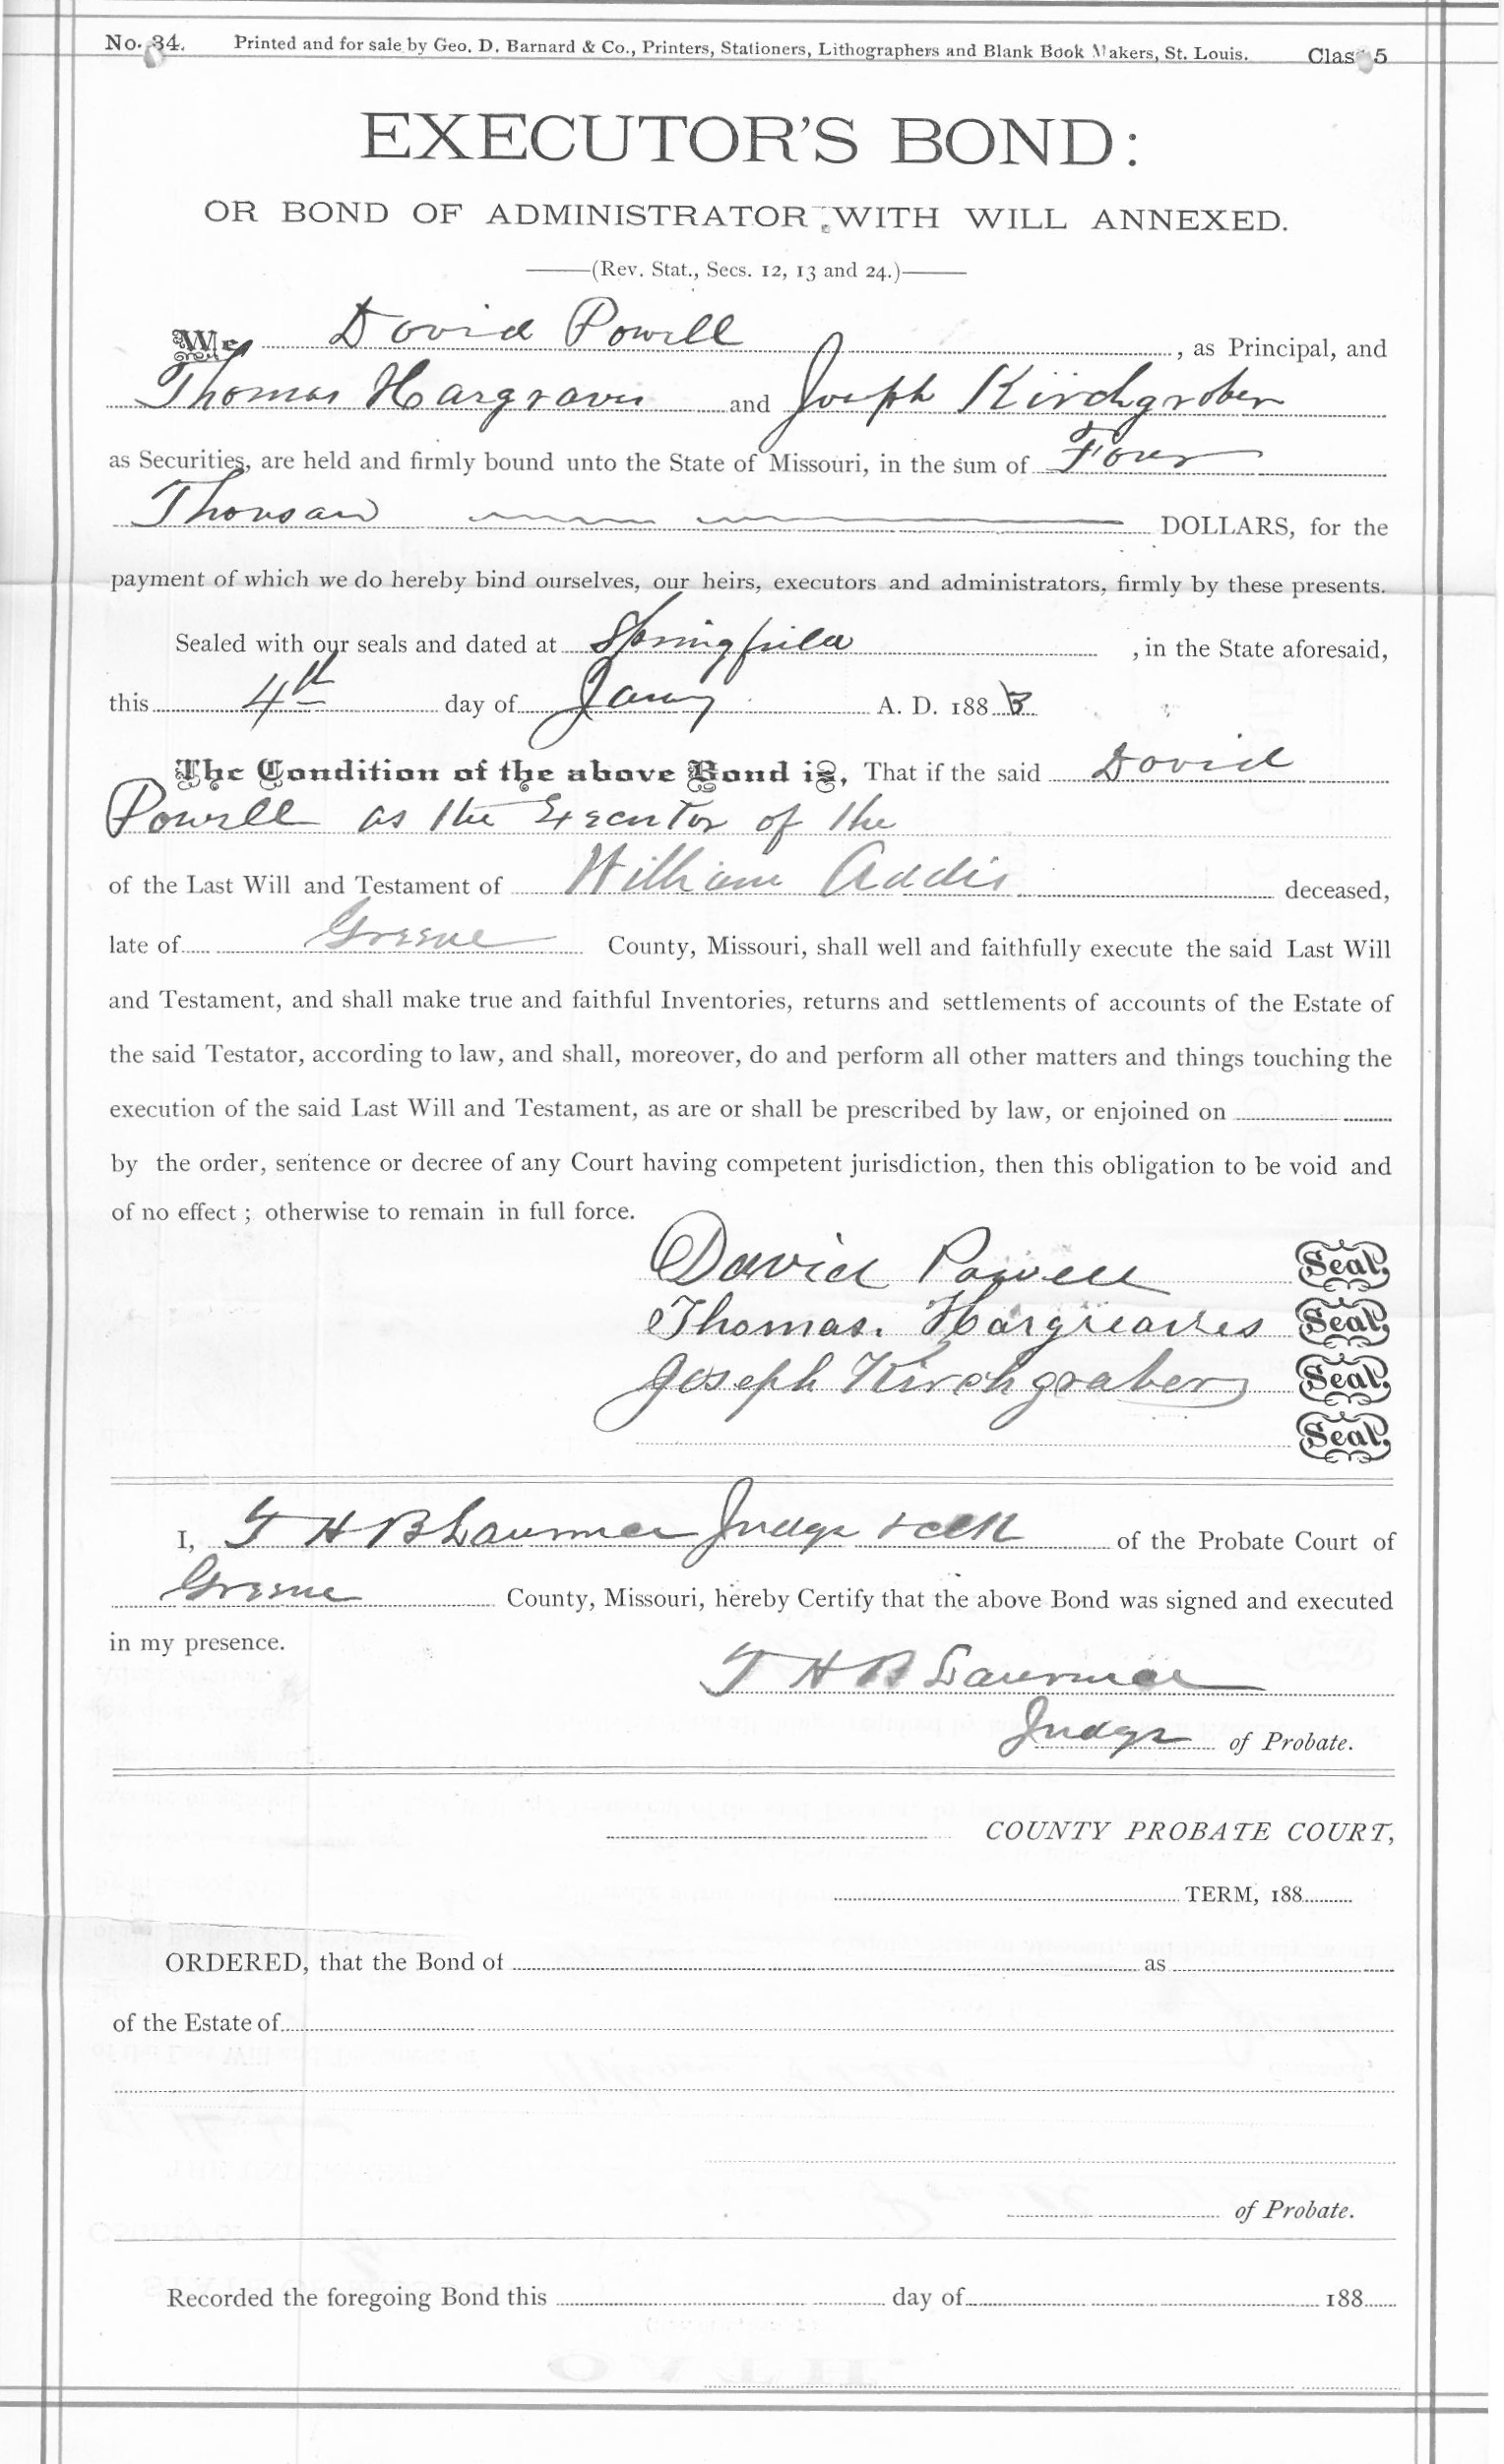 No. 34. Printed and for sale by Geo. D. Barnard & Co., Printers, Stationers, Lithographers and Blank Book Makers, St. Louis. Class 5
EXECUTOR'S BOND:
OR BOND OF ADMINISTRATOR, WITH WILL ANNEXED.
(Rev. Stat., Secs. 12, 13 and 24.)
We David Powell, as Principal, and
Thomas Hargraves and Joseph Kirchgraber
as Securities, are held and firmly bound unto the State of Missouri, in the sum of Four
Thousand DOLLARS, for the
payment of which we do hereby bind ourselves, our heirs, executors and administrators, firmly by these presents.
Sealed with our seals and dated at Springfield, in the State aforesaid,
this 4th day of Jany A. D. 188
The Condition of the above Bond is, That if the said David
Powell as the Executor of the
of the Last Will and Testament of William Addis deceased,
late of Greene County, Missouri, shall well and faithfully execute the said Last Will
and Testament, and shall make true and faithful Inventories, returns and settlements of accounts of the Estate of
the said Testator, according to law, and shall, moreover, do and perform all other matters and things touching the
execution of the said Last Will and Testament, as are or shall be prescribed by law, or enjoined on
by the order, sentence or decree of any Court having competent jurisdiction, then this obligation to be void and
of no effect; otherwise to remain in full force.
David Powell Seal.
Thomas. Hargreaves Seal.
Joseph Kirchgraber Seal.
Seal.
I, T H B Lawrence Judge & clk of the Probate Court of
Greene County, Missouri, hereby Certify that the above Bond was signed and executed
in my presence.
T H B Lawrence
Judge of Probate.
COUNTY PROBATE COURT,
TERM, 188
ORDERED, that the Bond of as
of the Estate of
of Probate.
Recorded the foregoing Bond this day of 188